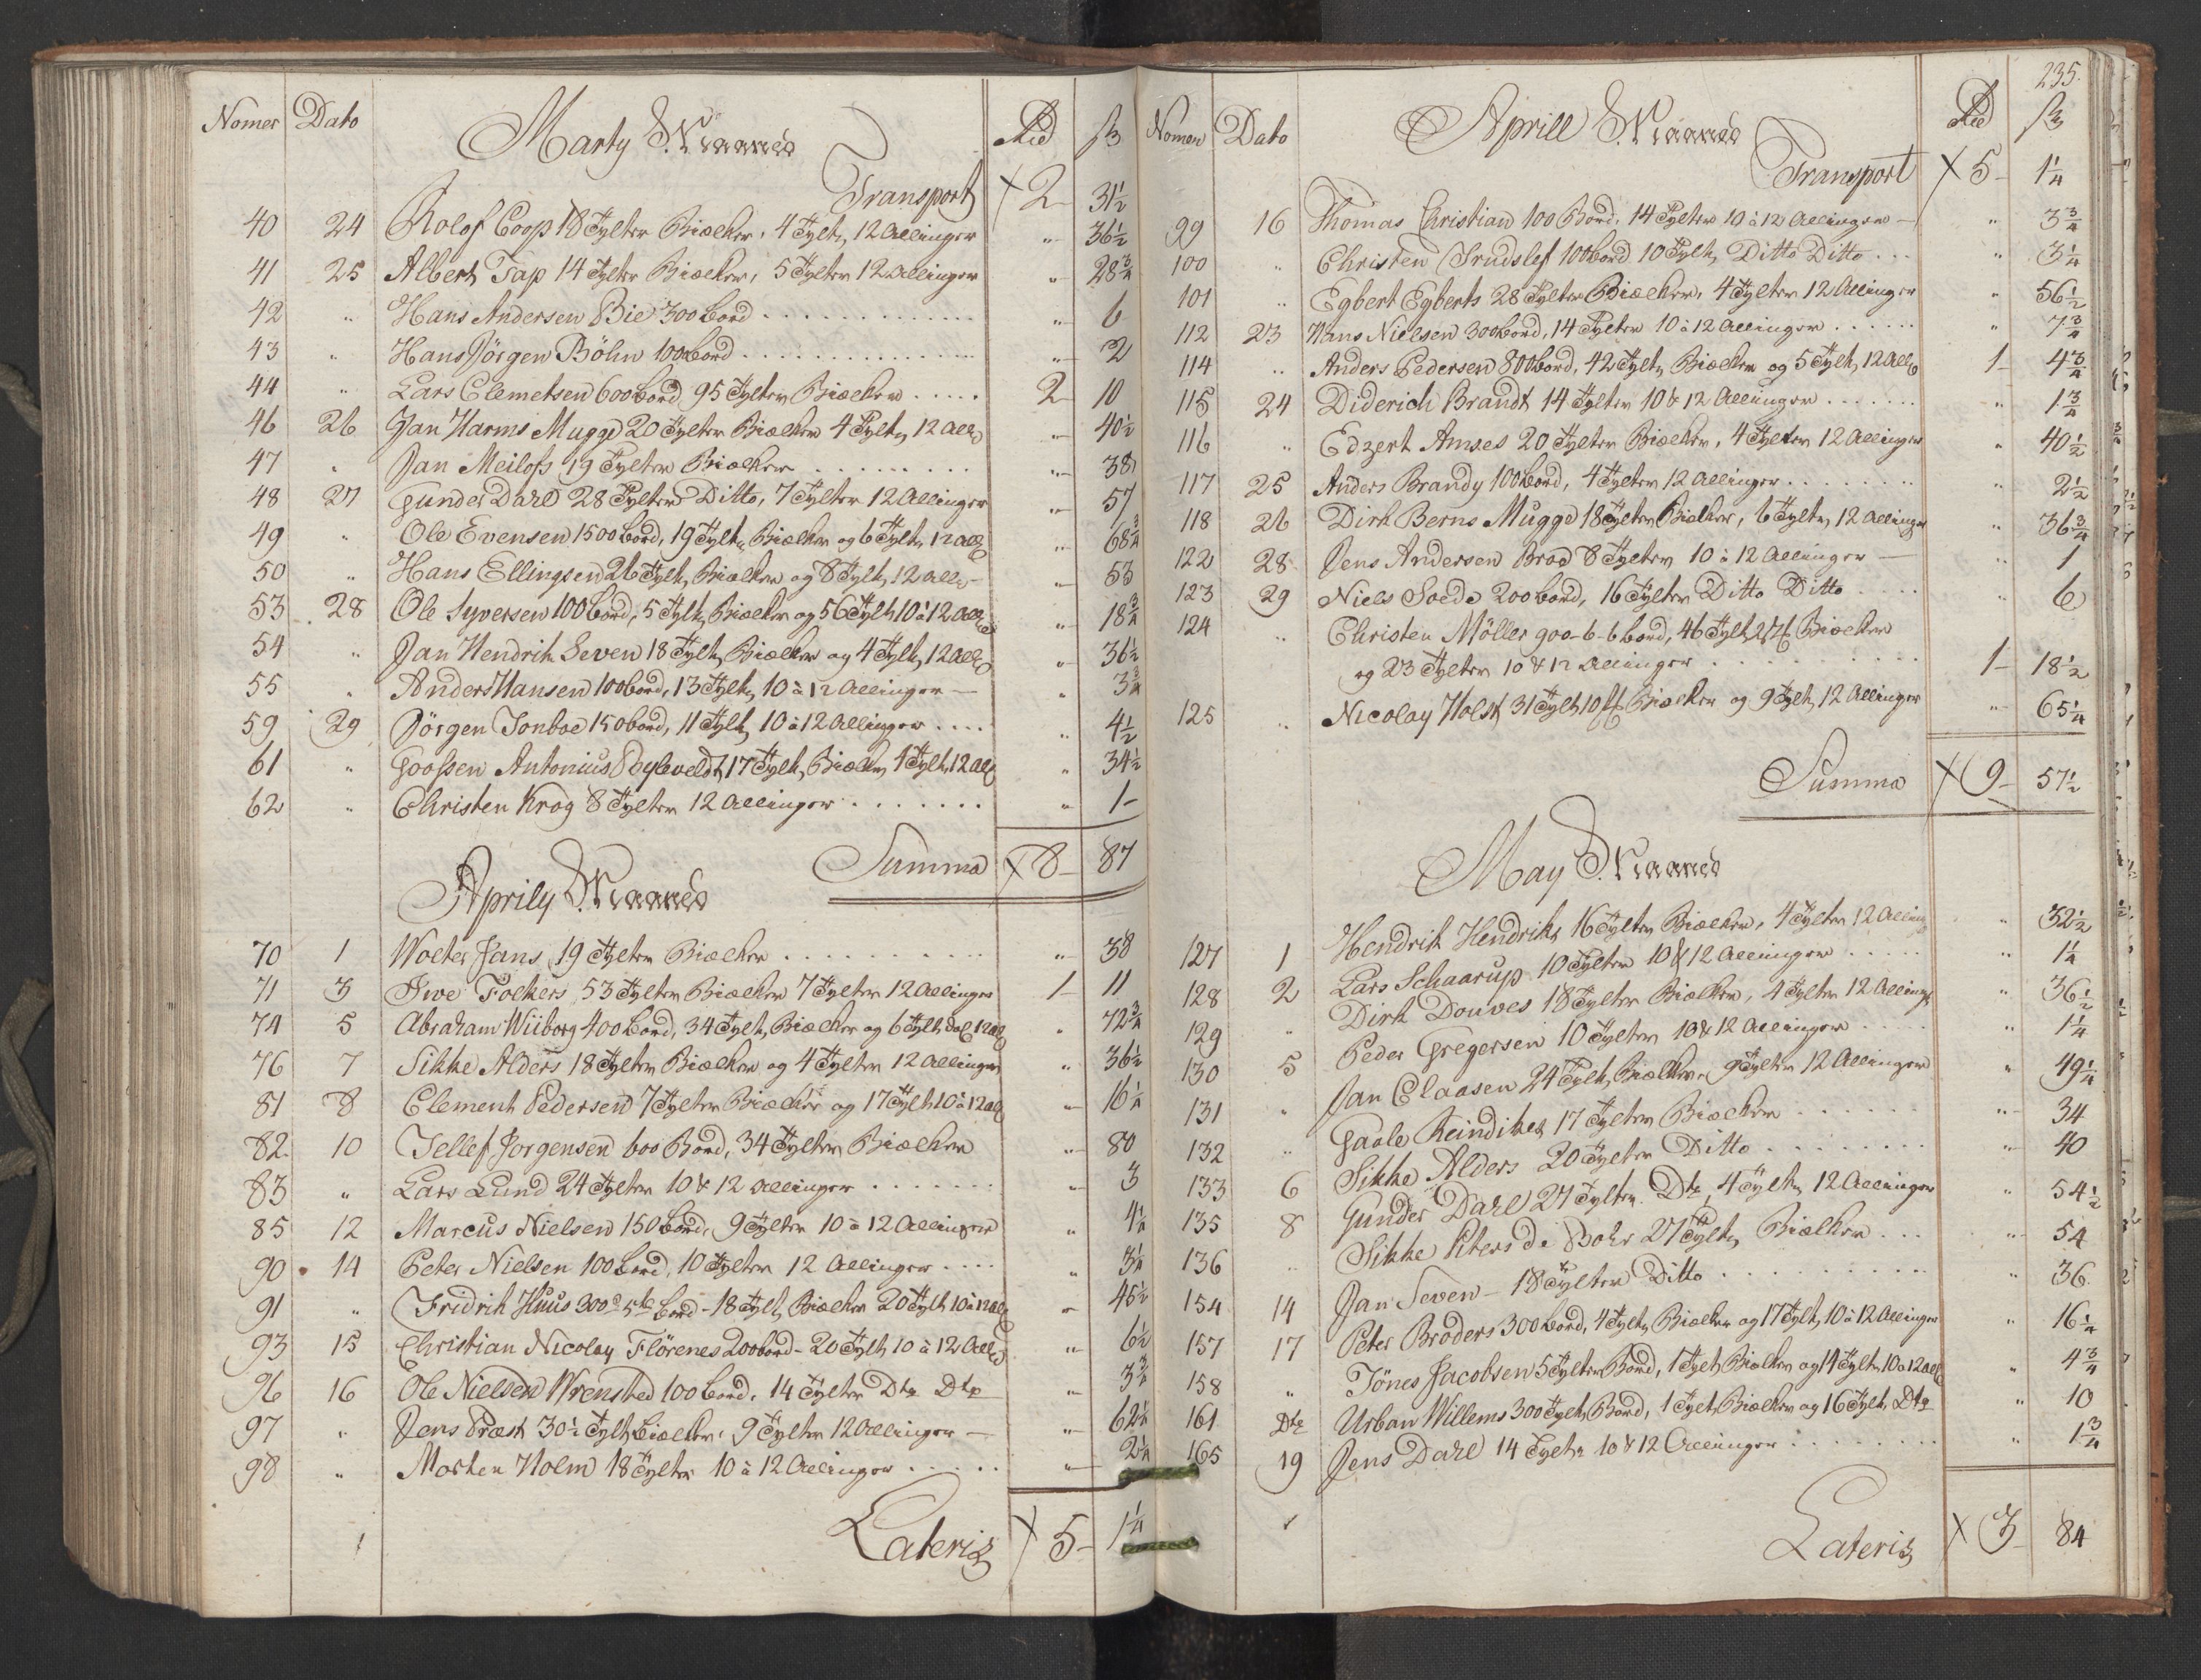 Nomer Dato Marty Maaned Rd ß
Transport 2 31½
40 24 Rolof Coop 18 Tylter Biælker, 4 Tylt, 12 Allinger " 36½
41 25 Albert Tap 14 Tylter Biælker, 5 Tylter 12 Allinger " 28¾
42 " Hans Andersen Bie 300 bord " 6
43 " Hans Jörgen Böhn 100 bord " 2
44 " Lars Clemetsen 600 bord 95 Tylter Biælker 2 10
46 26 Jan Harms Mugge 20 Tylter Biælker 4 Tylt, 12 All " 40½
47 " Jan Meilofs 19 Tylter Biælker " 38
48 27 Gunder Dahl 28 Tylter Ditto, 7 Tylter 12 Allinger " 57
49 " Ole Evensen 1500 bord, 19 Tylt, Biælker og 6 Tylt, 12 all " 68¾
50 " Hans Ellingsen 26 Tylt, Biælker og 8 Tylt, 12 all " 53
53 28 Ole Syversen 100 bord, 5 Tylt, Biælker og 56 Tylt 10 à 12 All " 18¾
54 " Jan Hendrik Seven 18 Tylt, Biælker og 4 Tylt, 12 All " 36½
55 " Anders Hansen 100 bord, 13 Tylt, 10 à 12 Allinger " 3¾
59 29 Jörgen Tonboe 150 bord, 11 Tylt, 10 à 12 Allinger " 4½
61 " Goossen Antonius Ryleveldt 17 Tylt, Biælk, 4 Tylt, 12 All " 34½
62 " Christen Krog 8 Tylter 12 Allinger " 1
Summa 8 87
Aprily Maaned
70 1 Wolter Jans 19 Tylter Biælker " 38
71 3 Iwe Folkers 53 Tylter Biælker 7 Tylter 12 Allinger 1 11
74 5 Abraham Wiiborg 400 bord, 34 Tylt, Biælker og 6 Tylt, 12 all " 72¾
76 7 Sikke Alders 18 Tylter Biælker og 4 Tylter 12 Allinger " 36½
81 8 Clement Pedersen 7 Tylter Biælker og 17 Tylt 10 à 12 all " 16¼
82 10 Tellef Jorgensen 600 Bord, 34 Tylter Biælker " 80
83 " Lars Lund 24 Tylter 10 & 12 Allinger " 3
85 12 Marcus Nielsen 150 bord, 9 Tylter 10 à 12 Allinger " 4¼
90 14 Peter Nielsen 100 bord, 10 Tylter 12 Allinger " 3¼
91 " Fridrik Huus 300 bord 18 Tylt, Biælker 20 Tylt 10 à 12 all " 45½
93 15 Christian Nicolay Flörenes 200 bord 20 Tylt, 10 à 12 All " 6½
96 16 Ole Nielsen Wrensted 100 bord, 14 Tylter Dto Dto " 3¾
97 " Jens Præst 30½ Tylt, Biælker, 9 Tylter 12 Allinger " 62¼
98 " Morten Holm 18 Tylter 10 à 12 Allinger " 2¼
Lateris 5 1¼
235.
Nomer Dato Aprill Maaned Rd ß
Transport 5 1¼
99 16 Thomas Christian 100 Bord, 14 Tylter 10 à 12 Allinger " 3¾
100 " Christen Trudslef 100 bord 10 Tylt, Ditto Ditto " 3¼
101 " Egbert Egberts 28 Tylter Biælker, 4 Tylter 12 Allinger " 56½
112 23 Hans Nielsen 300 bord, 14 Tylter 10 à 12 Allinger " 7¾
114 " Anders Pedersen 800 bord, 42 Tylt, Biælker og 5 Tylt, 12 All 1 4¾
115 24 Diderich Brandt 14 Tylter 10 & 12 Allinger " 1¾
116 " Edzert Amses 20 Tylter Biælker, 4 Tylter 12 Allinger " 40½
117 25 Anders Brandy 100 bord, 4 Tylter 12 Allinger " 2½
118 26 Dirk Berns Mugge 18 Tylter Biælker, 6 Tylt, 12 Allinger " 36¾
122 28 Jens Andersen Brod 8 Tylter 10 à 12 Allinger " 1
123 29 Niels Soede 200 bord, 16 Tylter Ditto Ditto " 6
124 " Christen Möller 900-6-6 bord, 46 Tylt Biælker
og 23 Tylter 10 & 12 Allinger 1 18½
125 " Nicolay Holst 31 Tylt 10 Biælker og 9 Tylt, 12 Allinger " 65¼
Summa 9 57½
May Maaned
127 1 Hendrik Hendriks 16 Tylter Biælker, 4 Tylter 12 Alling " 32½
128 2 Lars Schaarup 10 Tylter 10 & 12 Allinger " 1¼
129 " Dirk Douwes 18 Tylter Biælker, 4 Tylter 12 Alling " 36½
130 5 Peder Gregersen 10 Tylter 10 & 12 Allinger " 1¼
131 " Jan Claasen 24 Tylt, Biælker, 9 Tylter 12 Allinger " 49¼
132 " Gaale Reindikes 17 Tylter Biælker " 34
133 6 Sikke Alders 20 Tylter Ditto " 40
135 8 Gunder Dahl 27 Tylter Dto, 4 Tylt, 12 Allinger " 54½
136 " Sikke Piters de Boer 27 Tylt, Biælker " 54
154 14 Jan Seven 18 Tylter Ditto " 36
157 17 Peter Broders 300 bord, 4 Tylt, Biælker og 17 Tylt, 10 à 12 Allinger " 16¼
158 " Tönes Jacobsen 5 Tylter Bord, 1 Tylt, Biælker og 14 Tylt, 10 à 12 all " 4¾
161 Dto Urban Willems 300 Tylt, Bord, 1 Tylt, Biælker og 16 Tylt, Dto " 10
165 19 Jens Dahl 14 Tylt, 10 & 12 Allinger " 1¾
Lateris 3 84